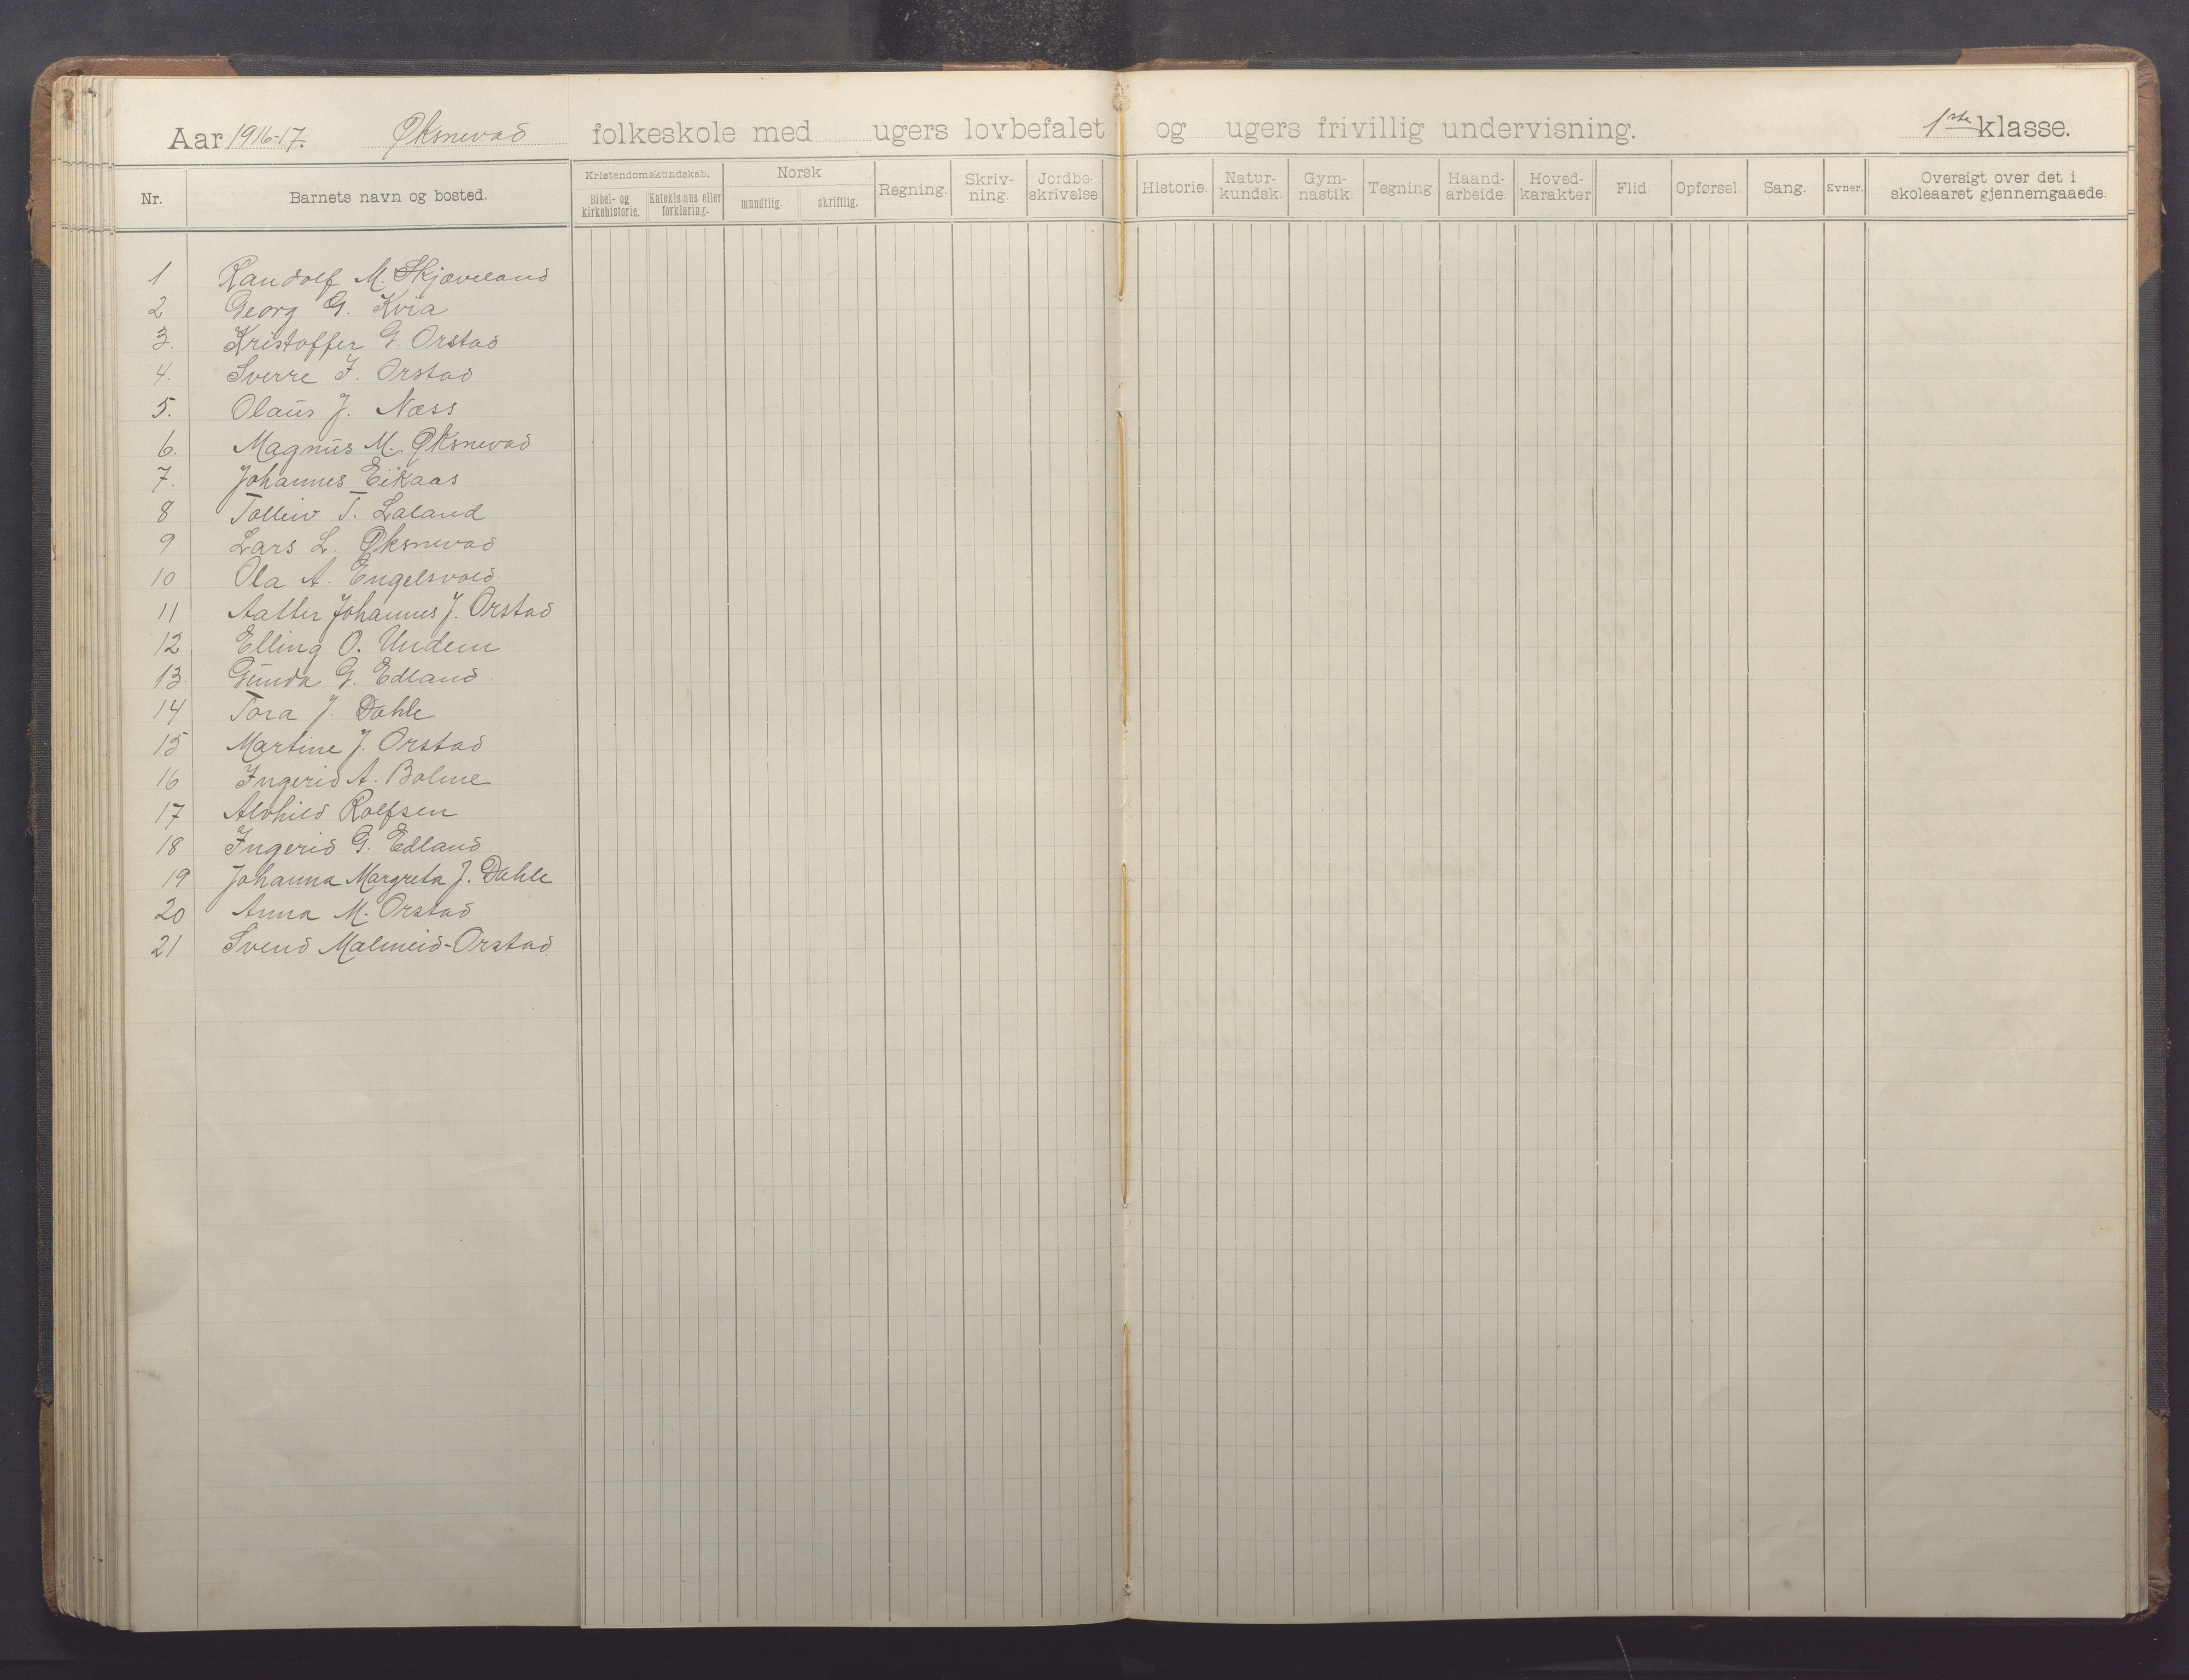 Aar 1916-17. Øksnevad folkeskole med ugers lovbefalet og ugers frivillig undervisning. 1ste klasse.
Nr. Barnets navn og bosted. Kristendomskundskab. Bibel- og kirkehistorie. Katekismus eller forklaring. Norsk mundtlig. skriftlig. Regning. Skriv-ning. Jordbe-skrivelse Historie. Natur-kundsk. Gym-nastik. Tegning Haand-arbeide. Hoved-karakter Flid. Opførsel. Sang. Evner. Oversigt over det i skoleaaret gjennemgaaede.
1 Randolf M. Skjæveland
2 Georg G. Kvia
3. Kristoffer G. Orstad
4. Sverre F. Orstad
5. Olaus J. Næss
6. Magnus M. Øksnevad
7. Johannes Eikaas
8 Tolleiv T. Laland
9 Lars L. Øksnevad
10 Ola A. Engelsvold
11 Johannes J. Orstad
12 Elling O. Undem
13 Gunda G. Edland
14 Tora J. Dahle
15 Martine J. Orstad
16 Ingerid A. Bolme
17 Alvhild Rolfsen
18 Ingerid G. Edland
19 Johanna Margreta J. Dahle
20 Anna M. Orstad
21 Svend Malmeid-Orstad